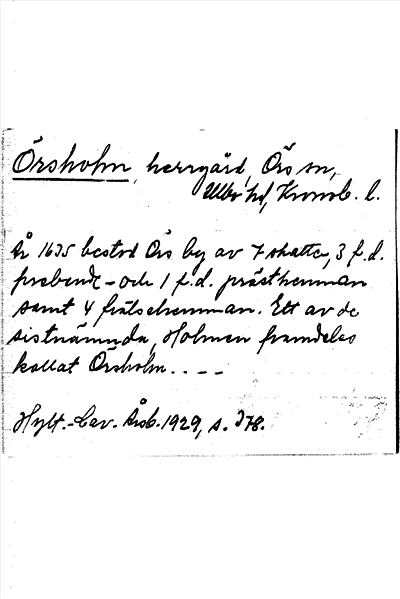 Örsholm, herrgård, Örs sn,
Allbo hd, Kronob. l.
År 1635 bestod Örs by av 7 skatte, 3 f.d.
prebende- och 1 f.d. prästhemman
samt 4 frälsehemman. Ett av de
sistnämnda, Holmen framdeles
kallat Örsholm. . — — —
Hylt.-Cav. Årsb. 1929, s. 378.